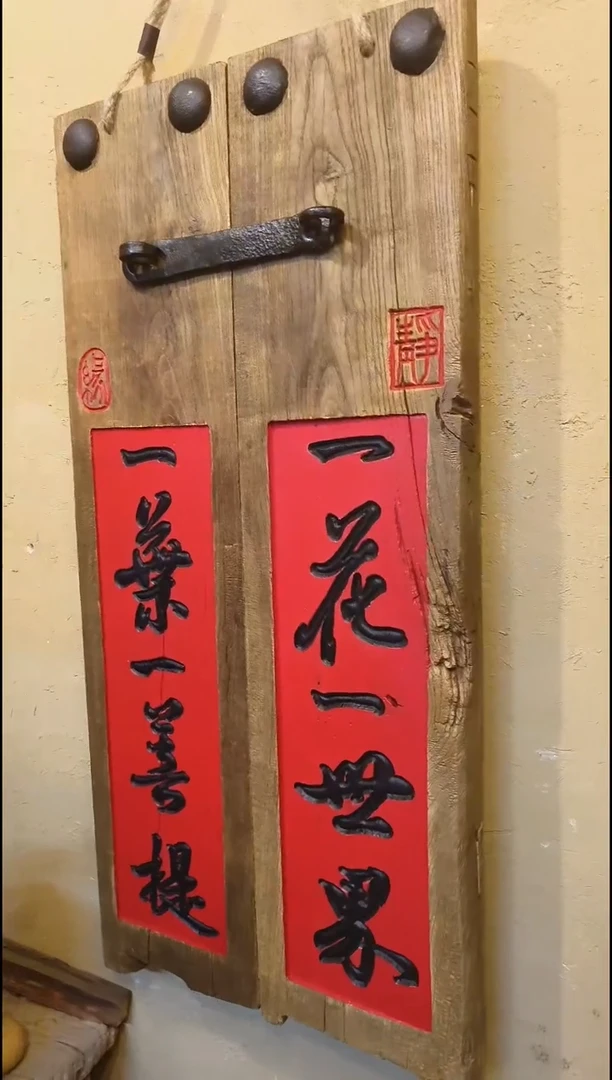 靜
一花一世界
一葉一菩提